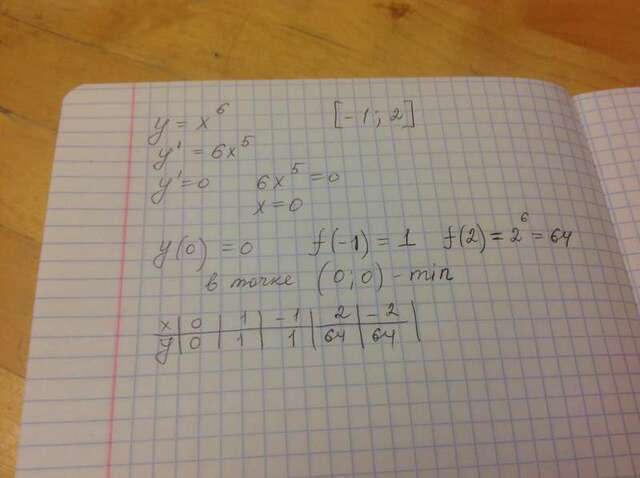 y = x⁶ [-1; 2]
y' = 6x⁵
y' = 0 6x⁵ = 0
x = 0
y(0) = 0 f(-1) = 1 f(2) = 2⁶ = 64
в точке (0; 0) - min
x | 0 | 1 | -1 | 2 | -2 |
y | 0 | 1 | 1 | 64 | 64 |